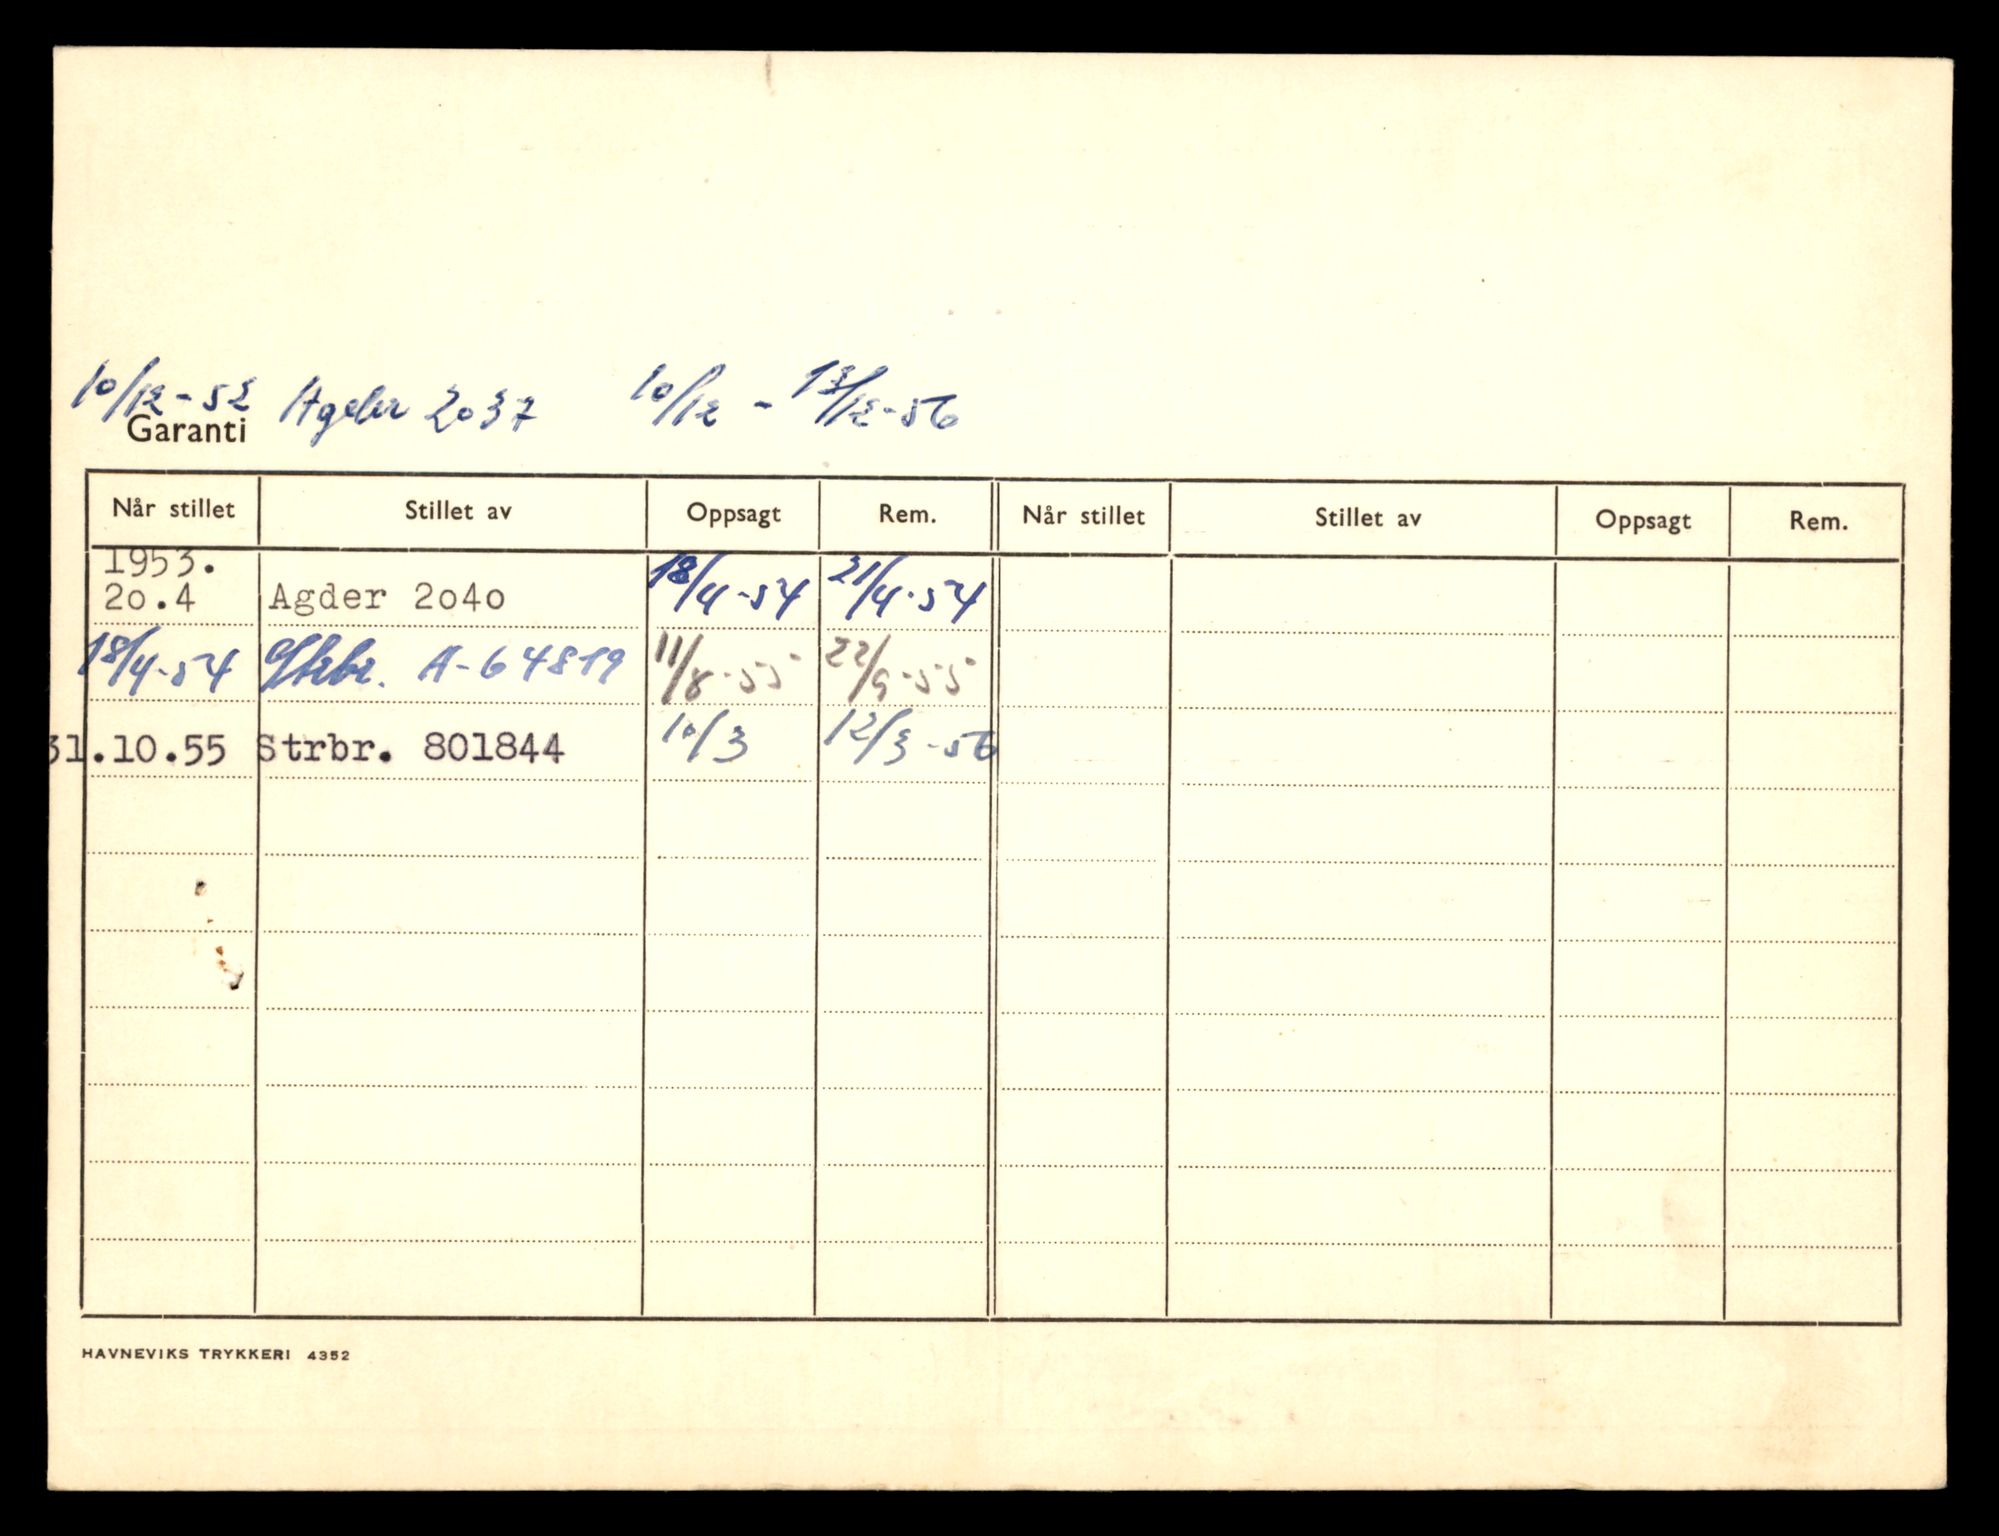 10/12-52 Agder 2037 10/12 - 13/12-56
Garanti
Når stillet Stillet av Oppsagt Rem. Når stillet Stillet av Oppsagt Rem.
1953.
20.4 Agder 2040 18/4-54 21/4-54
18/4-54 A-64819 11/8-55 22/9-55
31.10.55 Strbr. 801844 10/3 12/3-56
HAVNEVIKS TRYKKERI 4352